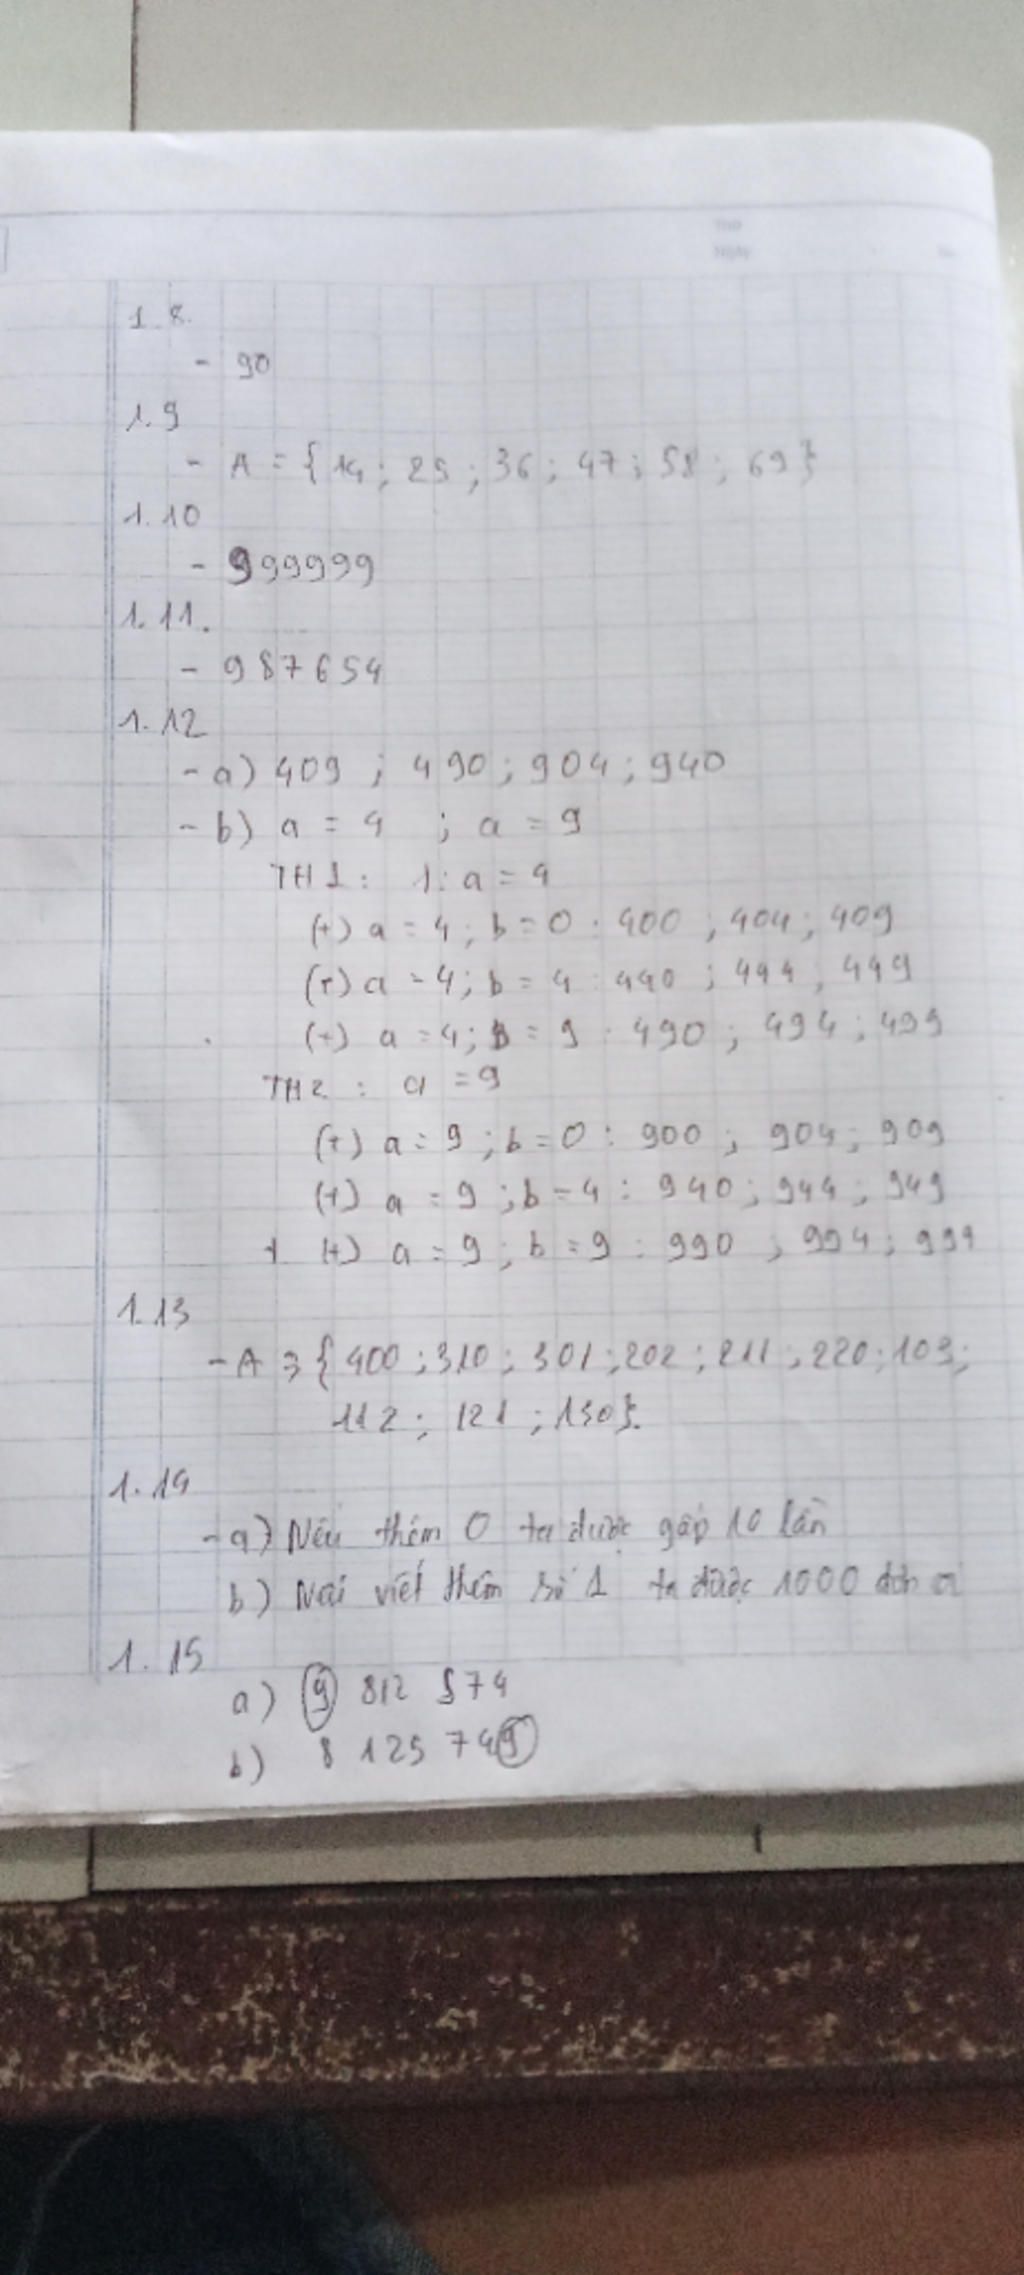 Thứ
Ngày
No.
1.8.
- 90
1.9
- A = { 14 ; 25 ; 36 ; 47 ; 58 ; 69 }
1.10
- 999999
1.11.
- 987654
1.12
- a) 409 ; 490 ; 904 ; 940
- b) a = 4 ; a = 9
TH1 : 1: a = 4
(+) a = 4 ; b = 0 : 400 ; 404 ; 409
(+) a = 4 ; b = 4 : 440 ; 444 ; 449
(+) a = 4 ; b = 9 : 490 ; 494 ; 499
TH2 : a = 9
(+) a = 9 ; b = 0 : 900 ; 904 ; 909
(+) a = 9 ; b = 4 : 940 ; 944 ; 949
+ (+) a = 9 ; b = 9 : 990 ; 994 ; 999
1.13
- A = { 400 ; 310 ; 301 ; 202 ; 211 ; 220 ; 103 ;
112 ; 121 ; 130 }.
1.14
- a) Nếu thêm 0 ta được gấp 10 lần
b) Nếu viết thêm số 1 ta được 1000
1.15
a) 9 812 574
b) 8 125 749